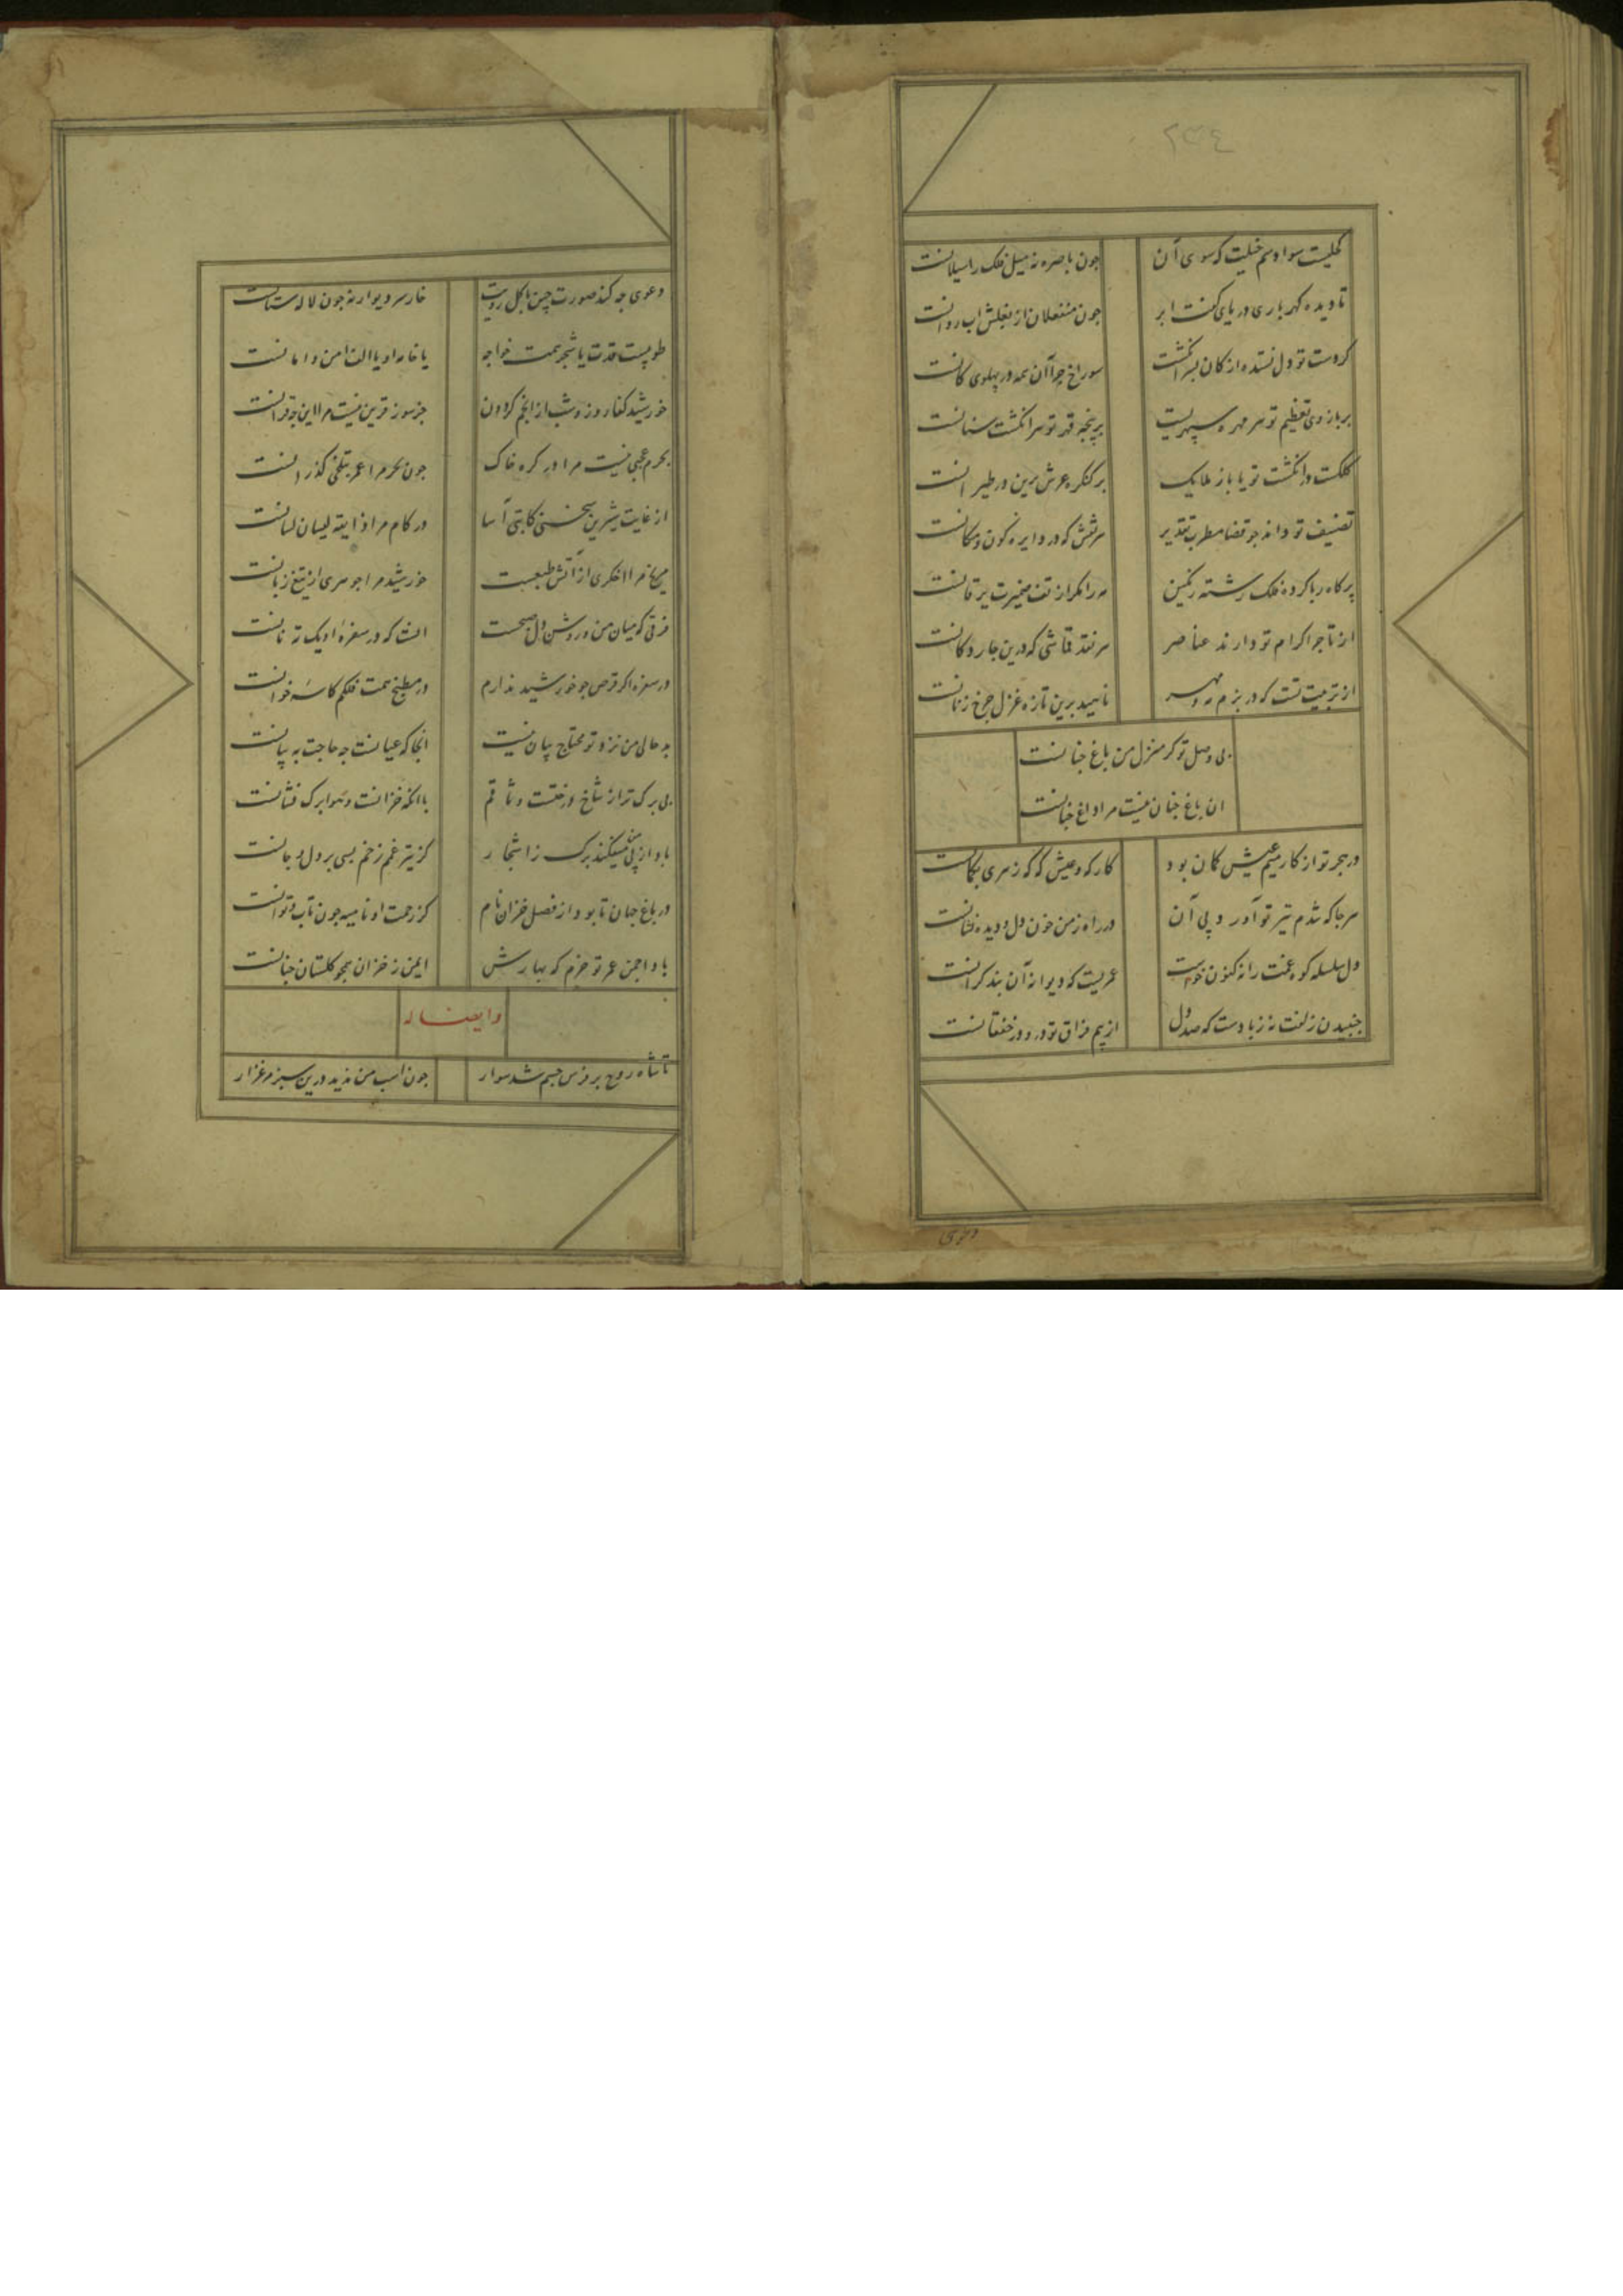 ٢٣٤
کحلیست سواد سم خیلت که سوی آن
جون باصره نه میل فلک را سیلانست
تا دیده کهرباری دریای کفت ابر
جون منفعلان از بغلش اب روانست
کر دست تو دل نستده از کان بسر انکشت
سوراخ جرا آن همه در پهلوی کانست
بر بازوی تعظیم تو هر مهره سپهریست
بر پنجه قهر تو هر انکشت سنانست
کلکست و انکشت تو یا باز ملایک
بر کنکره عرش برین در طیرانست
تصنیف تو داند جو قضا مطرب تقدیر
هر نقش که در دایره کون و مکانست
پر کاه ربا کرده فلک رشته رنکین
مه را مکر از تف ضمیرت یرقانست
از تاجر اکرام تو دارند عناصر
هر نقد قماشی که درین جار دکانست
از تربیت تست که در بزم مه و مهر
ناهید برین تازه غزل جرخ زنانست
بی وصل تو کر منزل من باغ جنانست
ان باغ جنان نیست مرا داغ جنانست
در هجر تو از کار میم عیش کمان بود
کار که و عیش که که زهری بکمانست
هر جا که شدم تیر تو آورد پی آن
در راه ز من خون دل و دیده نشانست
دل سلسله کوه غمت را نه کنون خواست
عمریست که دیوانه آن بند کرانست
جنبیدن زلفت نه ز بادست که صد دل
از بیم فراق تو در و در خفقانست
دعوی جه کند صورت چین با کل رویت
خار سر دیوار نه جون لاله ستانست
طوبیست قدت یا شجر همت خواجه
یا خامه او یا الف امن و امانست
خورشید کفا روز و شب از انجم کردون
جز سوز قرین نیست مرا این جه قرانست
بحرم عجبی نیست مرا در کره خاک
جون بحر مرا عمر بتلخی کذرانست
از غایت شیرین سخنی کاتبی آسا
در کام مرا ذایقه لیسان لسانست
مریخ مرا اخکری از آتش طبعست
خورشید مرا جوهری از تیغ زبانست
فرقی که میان من و روشن دل صبحست
انست که در سفره او یک ته نانست
در سفره اکر قرص جو خورشید ندارم
در مطبخ همت فلکم کاسه خوانست
بد حالی من نزد تو محتاج بیان نیست
انجا که عیانست جه حاجت به بیانست
بی برک تر از شاخ درختست وثاقم
با انکه خزانست و هوا برک فشانست
باد از پی من میکند برک ز اشجار
کز تیر غمم زخم بسی بر دل و جانست
در باغ جهان تا بود از فصل خزان نام
کز زحمت او نامیه جون تاب و توانست
بادا جمن عمر تو خرم که بهارش
ایمن ز خزان همجو کلستان جنانست
و ایضا له
تا شاه روح بر فرس جسم شد سوار
جون اسب من ندید درین سبز مرغزار